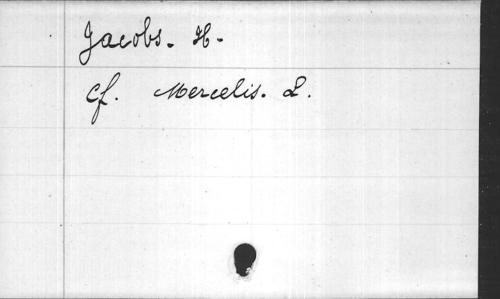 Jacobs. H.
Cf. Mercelis. L.